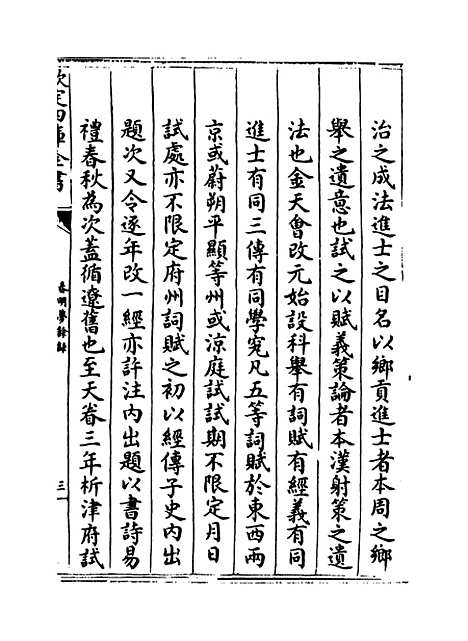 治之成法進士之目名以鄉貢進士者本周之鄉
舉之遺意也試之以賦義策論者本漢射策之遺
法也金天會改元始設科舉有詞賦有經義有同
進士有同三傳有同學究凡五等詞賦於東西兩
京或蔚朔平顯等州或涼庭試試期不限定月日
試處亦不限定府州詞賦之初以經傳子史內出
題次又令逐年改一經亦許注內出題以書詩易
禮春秋為次蓋循遼舊也至天眷三年析津府試
欽定四庫全書
春明夢餘錄
三